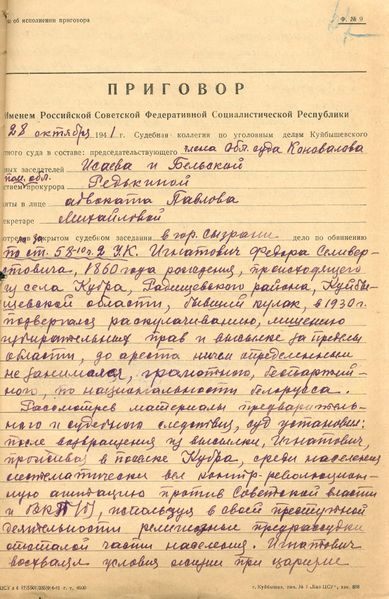 об исполнении приговора
Ф. № 9
ПРИГОВОР
Именем Российской Советской Федеративной Социалистической Республики
28 октября 1941 г. Судебная коллегия по уголовным делам Куйбышевского
суда в составе: председательствующего члена Обл. суда Коновалова
заседателей Исаева и Бельской
пом. обл.
прокурора Редькиной
в лице адвоката Павлова
секретаре Михайловой
закрытом судебном заседании в гор. Сызрани дело по обвинению
по ст. 58-10 ч. 2 УК. Игнатович Федора Селивер
стовича, 1860 года рождения, происходящего
из села Кубра, Радищевского района, Куйбы-
шевской области, бывший кулак, в 1930 г.
подвергался раскулачиванию, лишению
избирательных прав и высылке за пределы
области, до ареста ничем определенным
не занимался, грамотного, беспартий-
ного, по национальности белорусса.
Рассмотрев материалы предваритель-
ного и судебного следствия, суд установил:
после возвращения из высылки, Игнатович,
проживая в поселке Кубра, среди населения
систематически вел контр-революцион-
ную агитацию против Советской власти
и ВКП(б), используя в своей преступной
деятельности религиозные предрассудки
отсталой части населения. Игнатович
восхвалял условия жизни при царизме
г. Куйбышев, тип. № 1